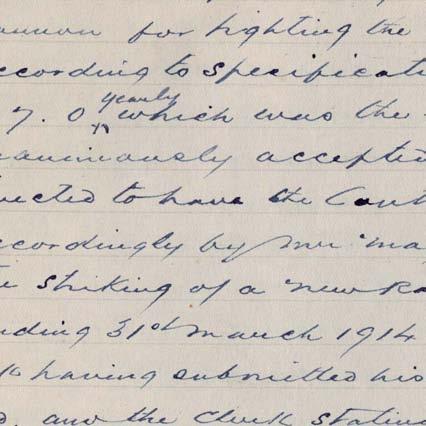 annon for lighting the
ccording to specificati
7. 0 yearly which was the
nanimously accepted
rected to have the Cont
ccordingly by Mr Ma
striking of a new Ra
nding 31st March 1914
having submitted his
and the Clerk stating